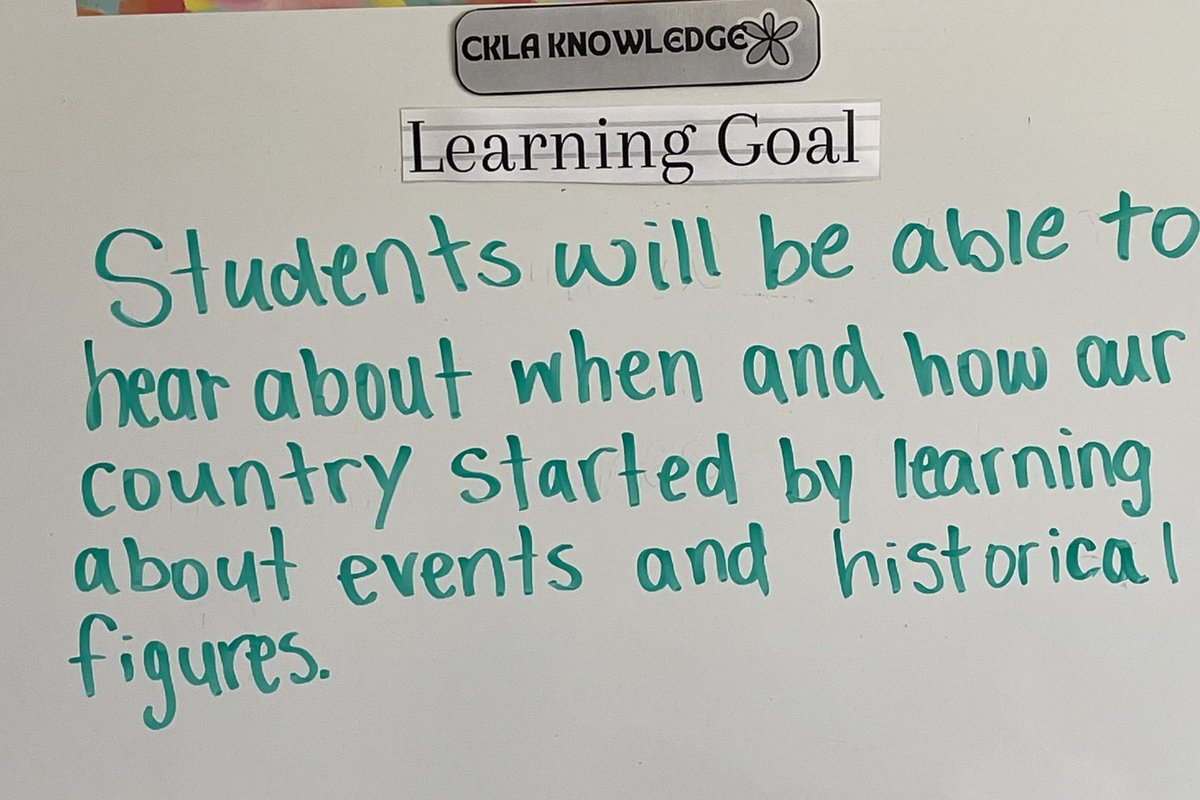 CKLA KNOWLEDGE
Learning Goal
Students will be able to
hear about when and how our
country started by learning
about events and historical
figures.